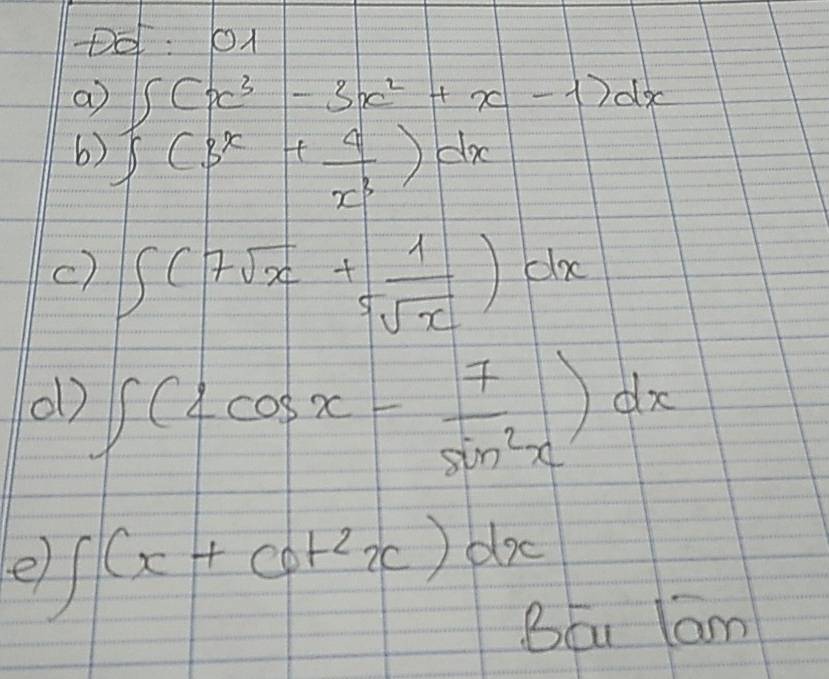 Đề : 01
a) ∫(x³ - 3x² + x - 1)dx
b) ∫(3ˣ + 4/x³) dx
c) ∫(7√x + 1/⁵√x) dx
d) ∫(2 cos x - 7/sin²x) dx
e) ∫(x + cot²x) dx
Bài làm